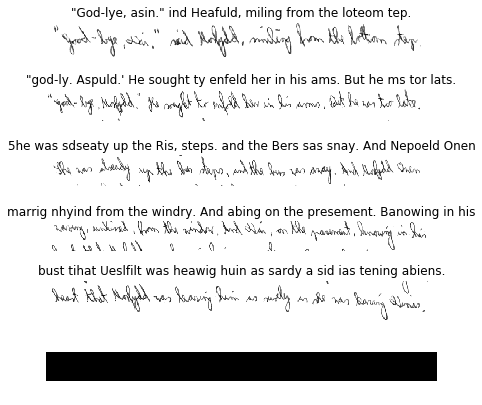 "God-lye, asin." ind Heafuld, miling from the loteom tep.
"good-bye, said smiling from the bottom step.
"god-ly. Aspuld.' He sought ty enfeld her in his ams. But he ms tor lats.
"good-bye, He sought to enfold her in his arms. But he was too late.
5he was sdseaty up the Ris, steps. and the Bers sas snay. And Nepoeld Onen
She was already up the bus steps, and the bus was away. And
marrig nhyind from the windry. And abing on the presement. Banowing in his
from the window. And on the pavement, knowing in his
bust tihat Ueslfilt was heawig huin as sardy a sid ias tening abiens.
heart that was leaving him as surely as she was leaving